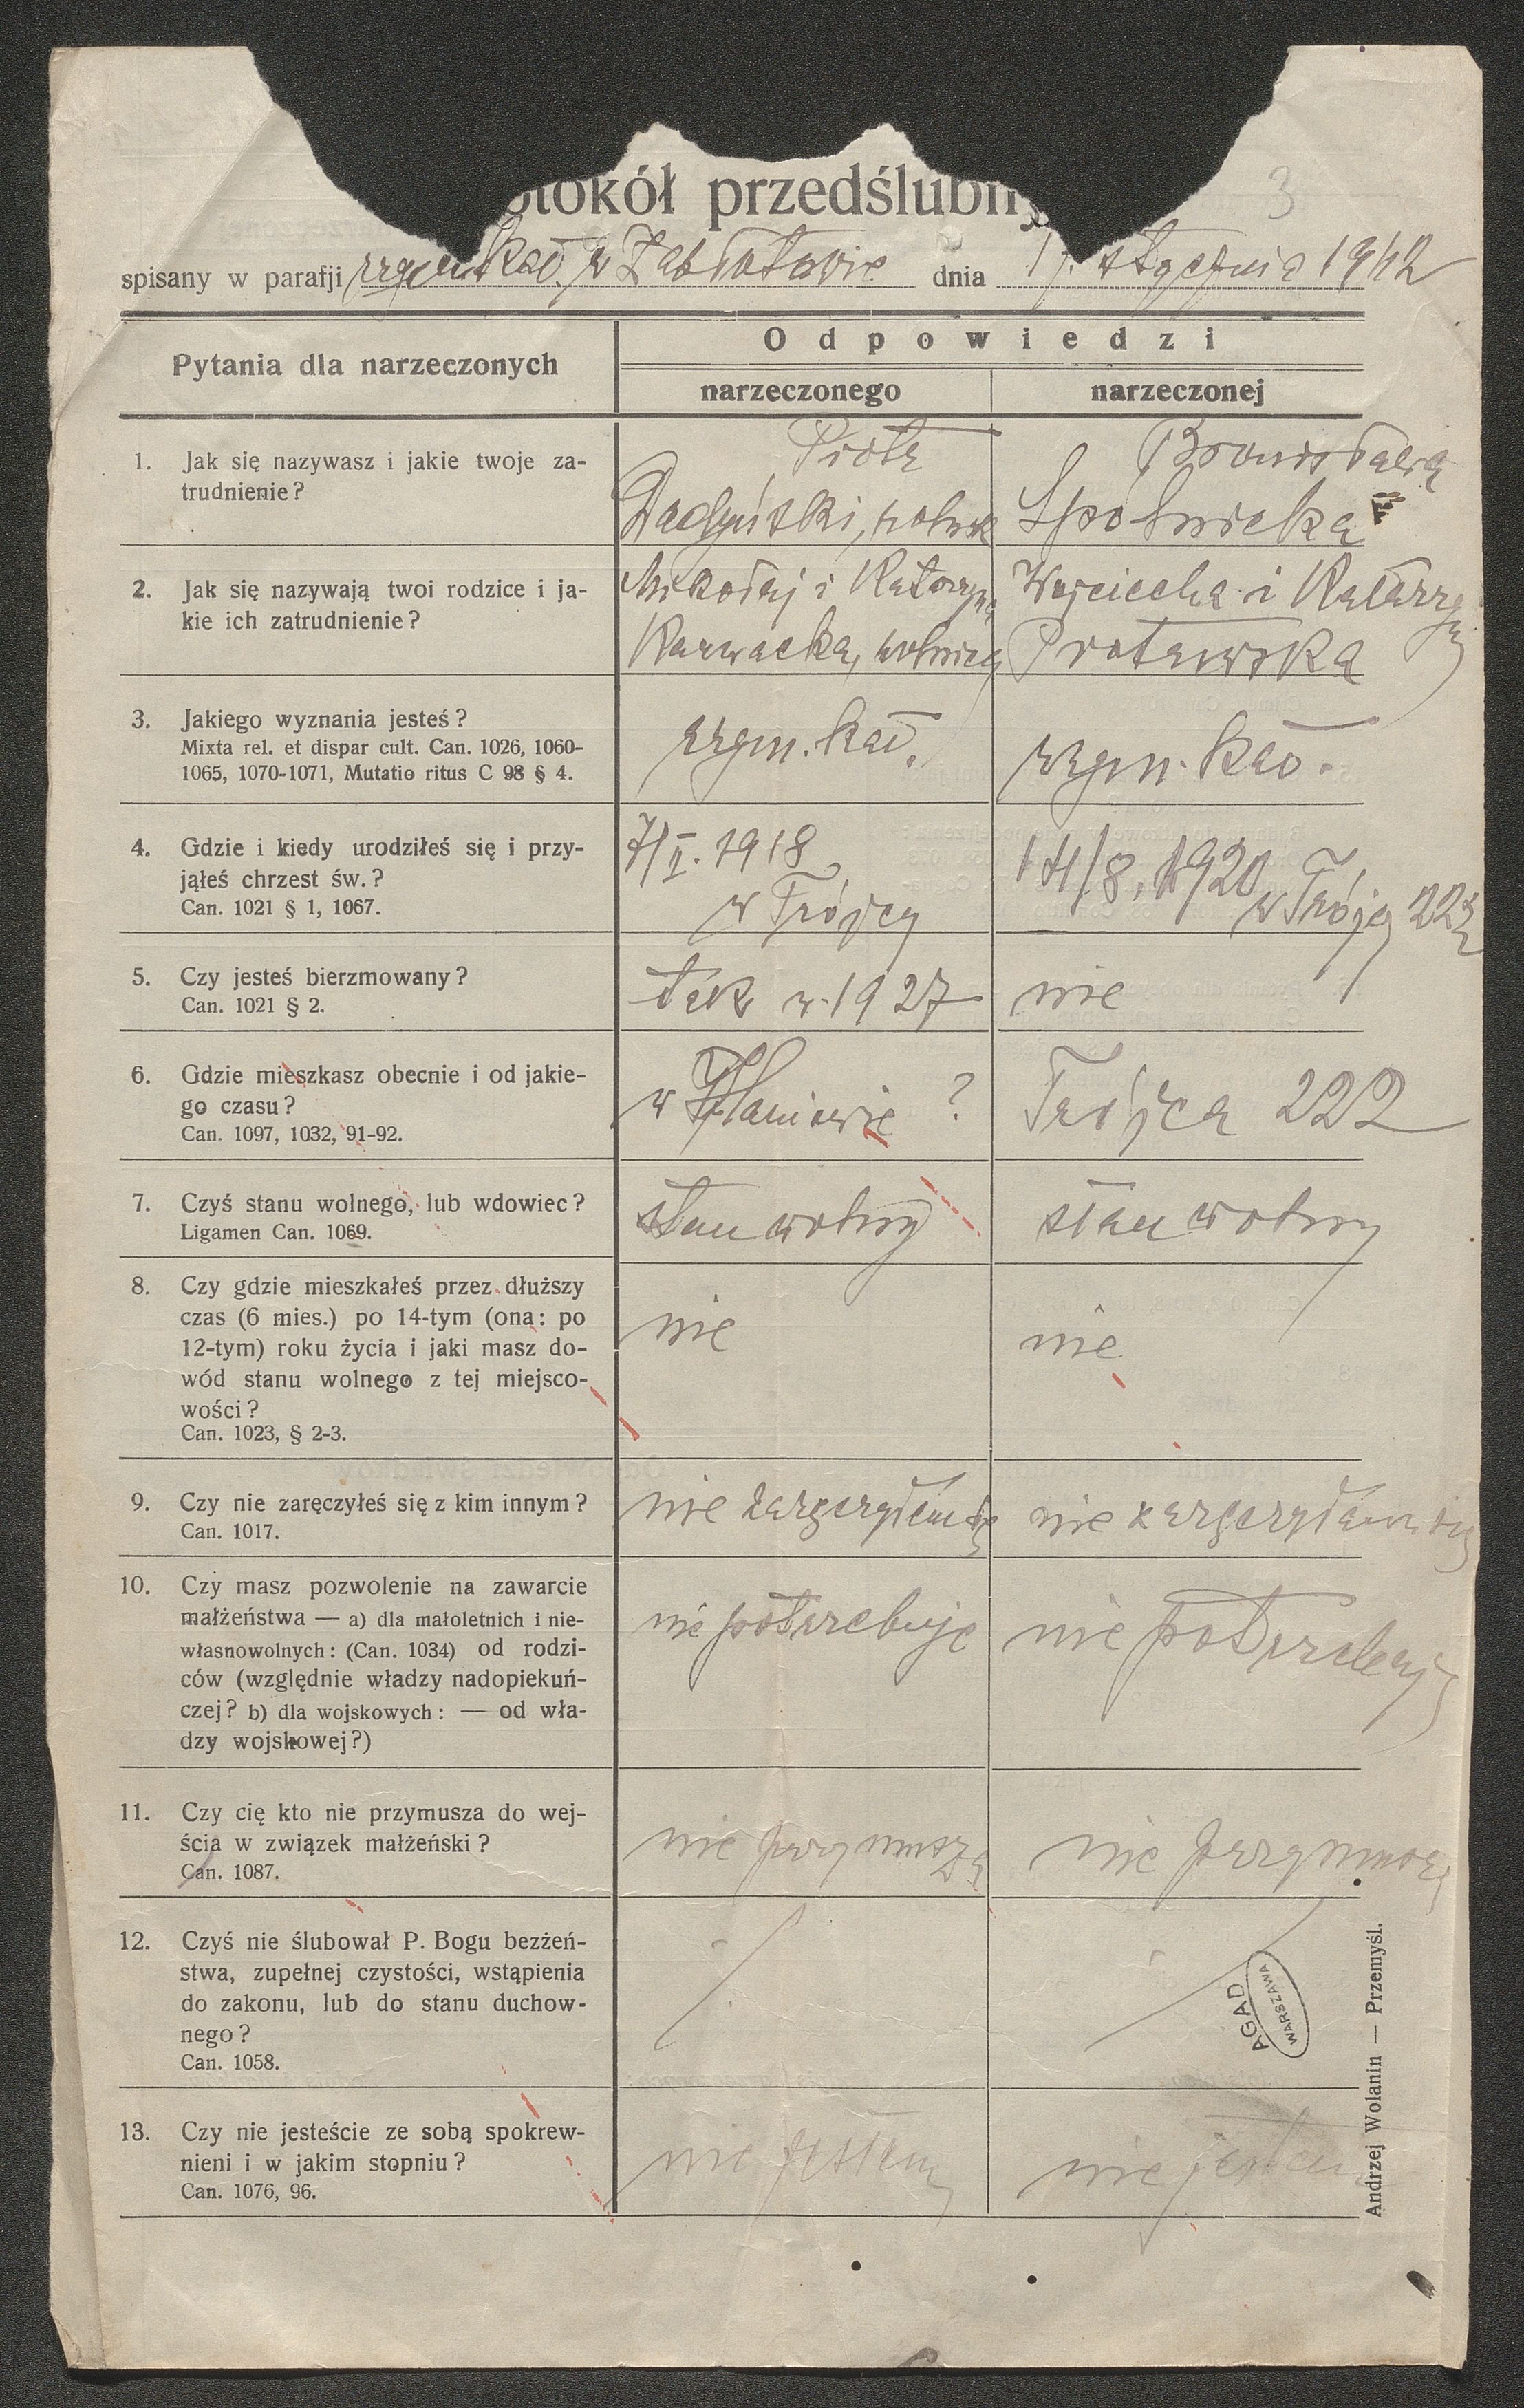 3
otokół przedślubny
spisany w parafji rzym. kat. w Zabłotowie dnia stycznia 1942
Pytania dla narzeczonych
Odpowiedzi
narzeczonego narzeczonej
1. Jak się nazywasz i jakie twoje za-
trudnienie?
Piotr
rolnik
Bronisława
Spólnicka
2. Jak się nazywają twoi rodzice i ja-
kie ich zatrudnienie?
Mikołaj i Katarzyna
Karwacka, rolnicy
Wojciecha i Katarzyny
3. Jakiego wyznania jesteś?
Mixta rel. et dispar cult. Can. 1026, 1060-
1065, 1070-1071, Mutatio ritus C 98 § 4.
rzym. kat.
rzym. kat.
4. Gdzie i kiedy urodziłeś się i przy-
jąłeś chrzest św.?
Can. 1021 § 1, 1067.
7/II. 1918
w Trójcy
14/8. 1920 w Trójcy
5. Czy jesteś bierzmowany?
Can. 1021 § 2.
tak w 1927
nie
6. Gdzie mieszkasz obecnie i od jakie-
go czasu?
Can. 1097, 1032, 91-92.
w ?
Trójca 222
7. Czyś stanu wolnego, lub wdowiec?
Ligamen Can. 1069.
stan wolny
stan wolny
8. Czy gdzie mieszkałeś przez dłuższy
czas (6 mies.) po 14-tym (ona: po
12-tym) roku życia i jaki masz do-
wód stanu wolnego z tej miejsco-
wości?
Can. 1023, § 2-3.
nie
nie
9. Czy nie zaręczyłeś się z kim innym?
Can. 1017.
nie zaręczyłem się
nie zaręczyłam się
10. Czy masz pozwolenie na zawarcie
małżeństwa — a) dla małoletnich i nie-
własnowolnych: (Can. 1034) od rodzi-
ców (względnie władzy nadopiekuń-
czej? b) dla wojskowych: — od wła-
dzy wojskowej?)
nie potrzebuje
nie potrzebuje
11. Czy cię kto nie przymusza do wej-
ścia w związek małżeński?
Can. 1087.
nie przymusza
nie
12. Czyś nie ślubował P. Bogu bezżeń-
stwa, zupełnej czystości, wstąpienia
do zakonu, lub do stanu duchow-
nego?
Can. 1058.
AGAD
WARSZAWA
13. Czy nie jesteście ze sobą spokrew-
nieni i w jakim stopniu?
Can. 1076, 96.
nie jestem
nie jestem
Andrzej Wolanin — Przemyśl.